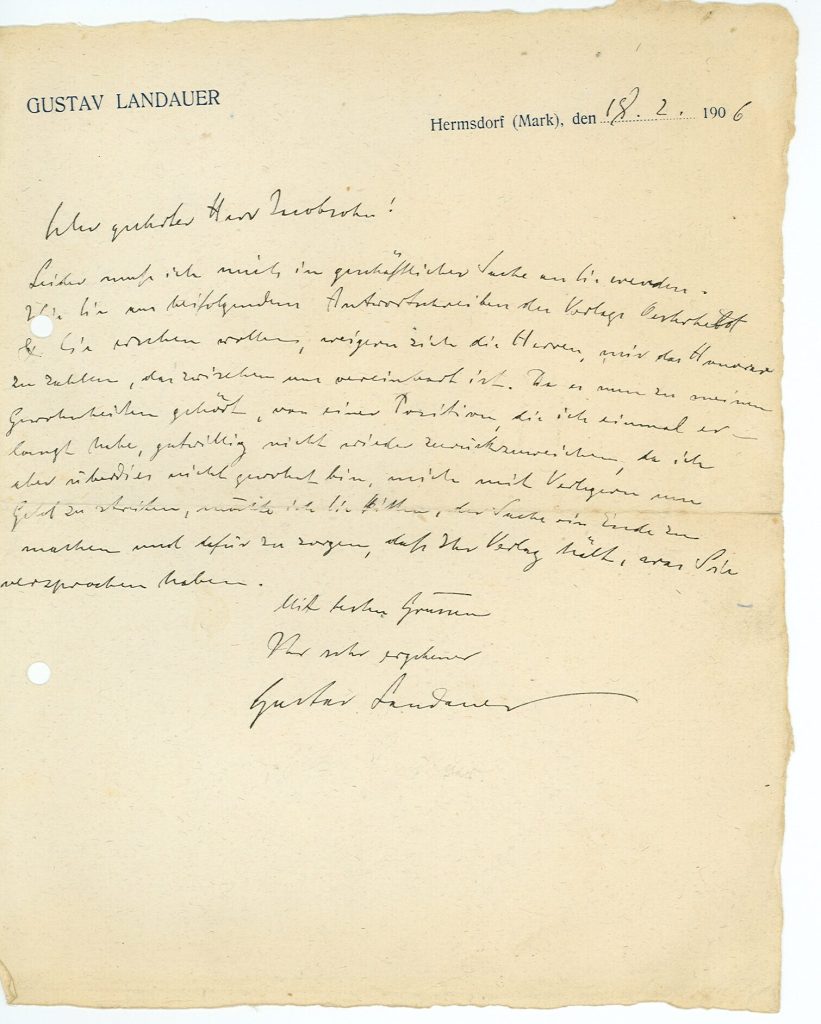 GUSTAV LANDAUER
Hermsdorf (Mark), den 18. 2. 1906
Sehr geehrter Herr Jacobsohn!
Leider muß ich mich in geschäftlicher Sache an Sie wenden.
Wie Sie aus beifolgendem Antwortschreiben des Verlags Oesterheld
& Co ersehen wollen, weigern sich die Herren, mir das Honorar
zu zahlen, das zwischen uns vereinbart ist. Da es nun zu meinen
Gewohnheiten gehört, von einer Position, die ich einmal er-
langt habe, gutwillig nicht wieder zurückzuweichen, da ich
aber überdies nicht gewohnt bin, mich mit Verlegern um
Geld zu streiten, möchte ich Sie bitten, der Sache ein Ende zu
machen und dafür zu sorgen, daß Ihr Verlag hält, was Sie
versprochen haben.
Mit besten Grüssen
Ihr sehr ergebener
Gustav Landauer